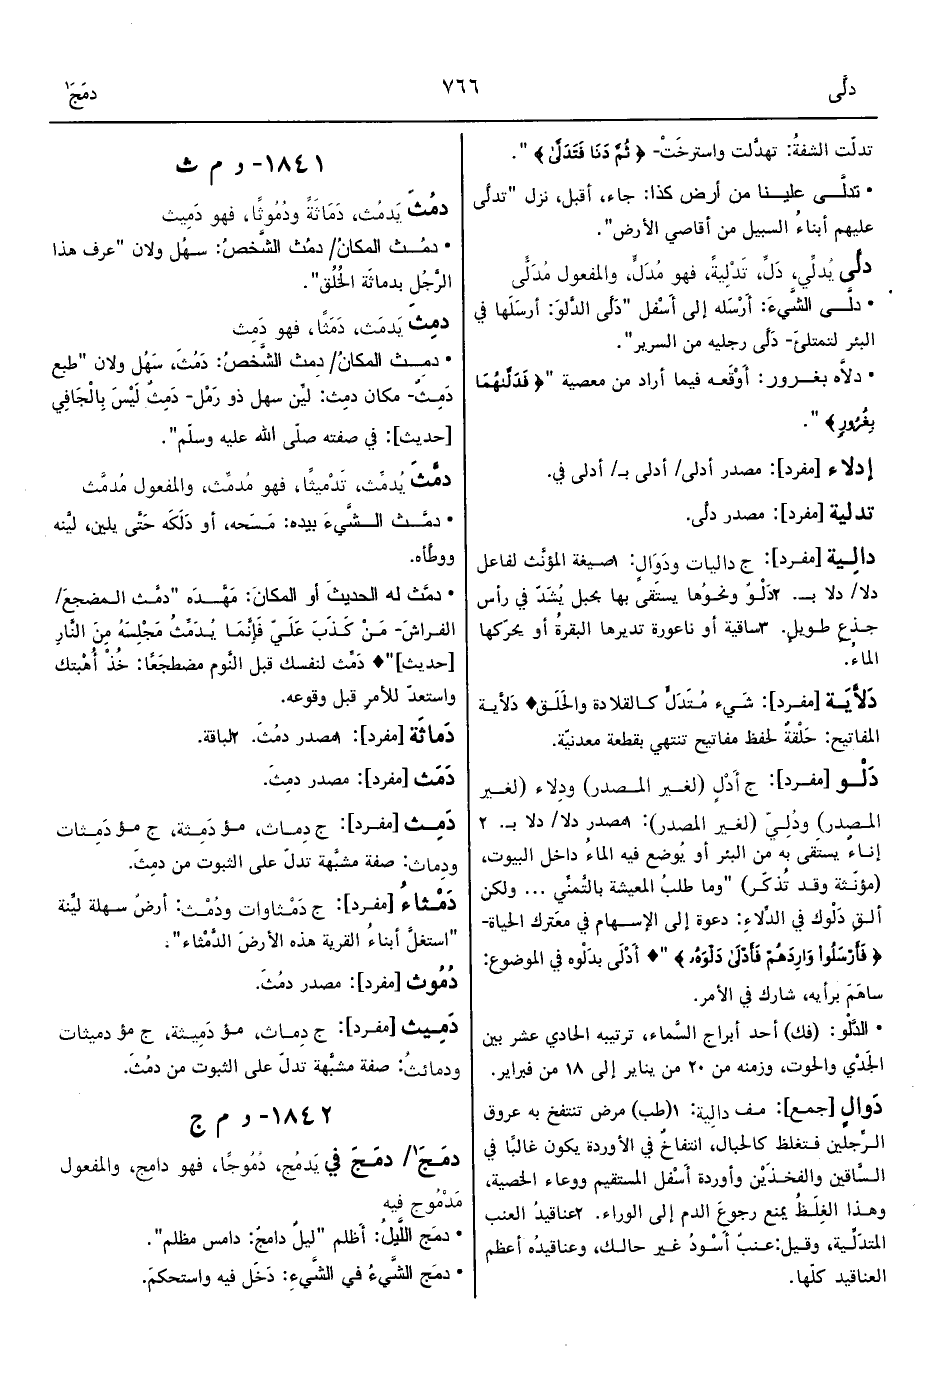 دلَّى
٧٦٦
دمَجَ١
تدلّت الشفةُ: تهدّلت واسترختْ- ﴿ ثُمَّ دَنَا فَتَدَلَّىٰ ﴾ ".
• تدلَّـى علينـا من أرض كذا: جاء، أقبل، نزل "تدلَّى
عليهم أبناءُ السبيل من أقاصي الأرض".
دلَّى يُدلِّي، دَلِّ، تَدْلِيةً، فهو مُدَلٍّ، والمفعول مُدَلًّى
• دلَّـى الشَّيءَ: أرْسَله إلى أسْفل "دَلَّى الدَّلوَ: أرسلَها في
البئر لتمتلئ- دَلَّى رجليه من السرير".
• دلاَّه بغـرور: أوْقَعه فيما أراد من معصية "﴿ فَدَلَّىٰهُمَا
بِغُرُورٍ ﴾ ".
إدلاء [مفرد]: مصدر أدلى/ أدلى بـ/ أدلى في.
تدلية [مفرد]: مصدر دلَّى.
دالِيـة [مفـرد]: ج داليات ودَوَالٍ: ١صيغة المؤنَّث لفاعل
دلا/ دلا بـ. ٢دَلْوٌ ونحوُها يستقى بها بحبل يُشَدّ في رأس
جـذع طـويل. ٣ساقية أو ناعورة تديرها البقرةُ أو يحرّكها
الماءُ.
دَلاَّيَـة [مفـرد]: شَيء مُـتَدلٍّ كـالقلادة والحَلَق♦ دَلاَّيـة
المفاتيح: حَلْقةٌ لحفظ مفاتيح تنتهي بقطعة معدنيّة.
دَلْــو [مفـرد]: ج أدْلٍ (لغـير المـصدر) ودِلاء (لغـير
المـصدر) ودُلِـيّ (لغـير المصدر): ١مصدر دلا/ دلا بـ. ٢
إنـاء يستقى به من البئر أو يُوضع فيه الماءُ داخل البيوت،
(مؤنّـثة وقـد تُذكّـر) "وما طلبُ المعيشة بالتَّمنِّي ... ولكن
ألـقِ دَلْوك في الدِّلاءِ: دعوة إلى الإسـهام في معترك الحياة-
﴿ فَأَرْسَلُوا۟ وَارِدَهُمْ فَأَدْلَىٰ دَلْوَهُۥ ﴾ "♦ أدْلَى بدَلْوه في الموضوع:
ساهَمَ برأيه، شارك في الأمر.
• الدَّلْو: (فك) أحد أبراج السَّماء، ترتيبه الحادي عشر بين
الجَدْي والحوت، وزمنه من ٢٠ من يناير إلى ١٨ من فبراير.
دَوالٍ [جمع]: مـف دالية: ١(طب) مرض تنتفخ به عروق
الـرِّجلين فـتغلظ كـالحبال، انتفاخٌ في الأوردة يكون غالبًا في
السَّاقين والفخذَيْن وأوردة أسْفل المستقيم ووعاء الخصية،
وهـذا الغِلَـظُ يمنع رجوعَ الدم إلى الوراء. ٢عناقيدُ العنب
المتدلِّـية، وقـيل:عـنبٌ أسْـودُ غير حالـك، وعناقيدُه أعظم
العناقيد كلّها.
١٨٤١- د م ث
دمُثَ يَدمُث، دَمَاثَةً ودُمُوثًا، فهو دَمِيث
• دمُـث المكانُ/ دمُث الشَّخصُ: سـهُل ولان "عرف هذا
الرَّجُل بدماثَة الخُلُق".
دمِثَ يَدمَث، دَمَثًا، فهو دَمِث
• دمِــث المكانُ/ دمِث الشَّخصُ: دَمُثَ، سَهُل ولان "طبع
دَمِث- مكان دمِث: ليّن سهل ذو رَمْل- دَمِثٌ لَيْسَ بِالْجَافِي
[حديث]: في صفته صلّى الله عليه وسلّم".
دمَّثَ يُدمِّث، تَدْميثًا، فهو مُدمِّث، والمفعول مُدمَّث
• دمَّـث الـشَّيءَ بيده: مَـسَحه، أو دَلَكَه حَتَّى يلين، ليَّنه
ووطَّأه.
• دمَّث له الحديثَ أو المكانَ: مَهَّـده "دمَّث الـمضجعَ/
الفراشَ- مَـنْ كَذَبَ عَلَـيَّ فَإِنَّمَا يُـدَمِّثُ مَجْلِسَهُ مِنَ النَّارِ
[حديث]"♦ دَمِّث لنفسك قبل النَّوم مضطجَعًا: خُذْ أُهْبتك
واستعدّ للأمر قبل وقوعه.
دَماثَة [مفرد]: ١مصدر دمُثَ. ٢لباقة.
دَمَث [مفرد]: مصدر دمِثَ.
دَمِـث [مفـرد]: ج دِمـاث، مـؤ دَمِـثة، ج مـؤ دَمِـثات
ودِماث: صفة مشبَّهة تدلّ على الثبوت من دمِثَ.
دَمْـثاءُ [مفـرد]: ج دَمْـثاوات ودُمْـث: أرضٌ سهلة ليِّنة
"استغلّ أبناءُ القرية هذه الأرضَ الدَّمْثاء".
دُمُوث [مفرد]: مصدر دمُثَ.
دَمِـيث [مفـرد]: ج دِمـاث، مـؤ دَمِـيثة، ج مؤ دميثات
ودماثٌ: صفة مشبَّهة تدلّ على الثبوت من دمُثَ.
١٨٤٢- د م ج
دمَـجَ١/ دمَـجَ في يَدمُج، دُمُوجًا، فهو دامج، والمفعول
مَدْمُوج فيه
• دمَج اللَّيلُ: أظلم "ليلٌ دامجٌ: دامس مظلم".
• دمَج الشَّيءُ في الشَّيءِ: دَخَل فيه واستحكمَ.